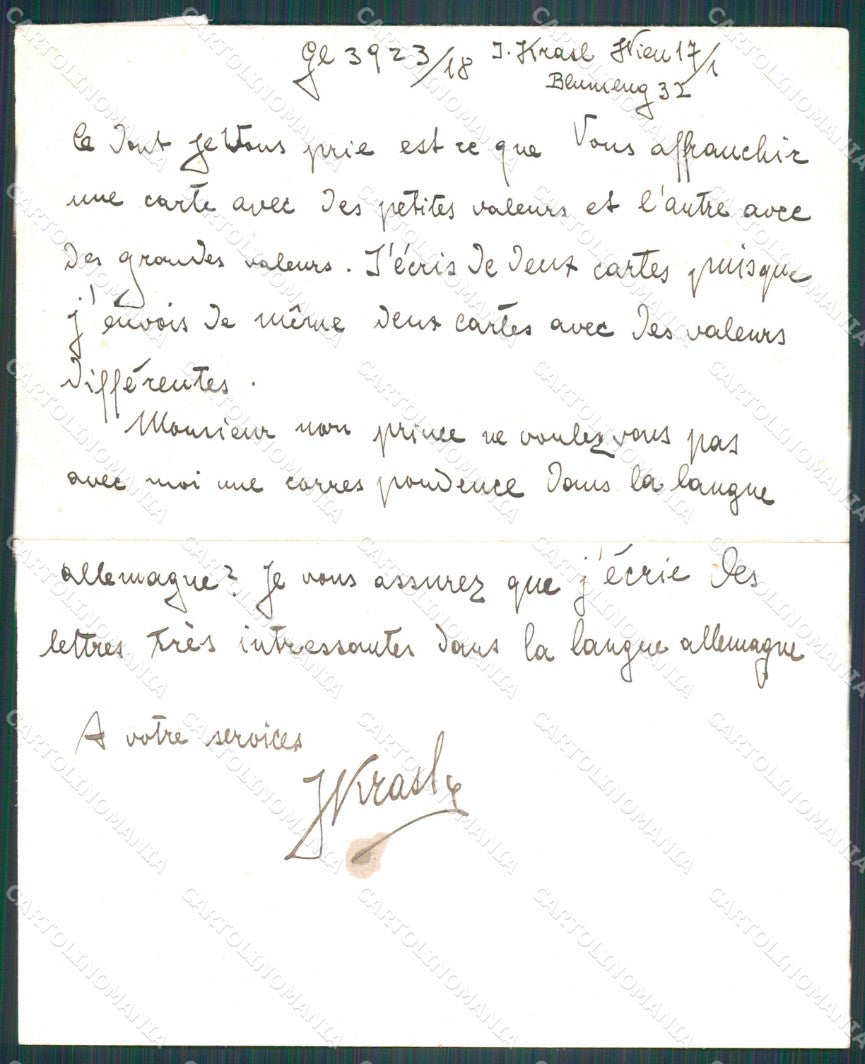 Gl 3923/18 J. Krasl Wien 17/1
Blumeng 32
Ce dont je Vous prie est ce que Vous affranchir
une carte avec des petites valeurs et l'autre avec
des grandes valeurs. J'écris de deux cartes puisque
j'envois de même deux cartes avec des valeurs
différentes.
Monsieur mon prince ne voulez vous pas
avec moi une correspondence dans la langue
allemagne? Je vous assurez que j'écrie des
lettres très intressantes dans la langue allemagne
A votre services
JKrasl
CARTOLINOMANIA